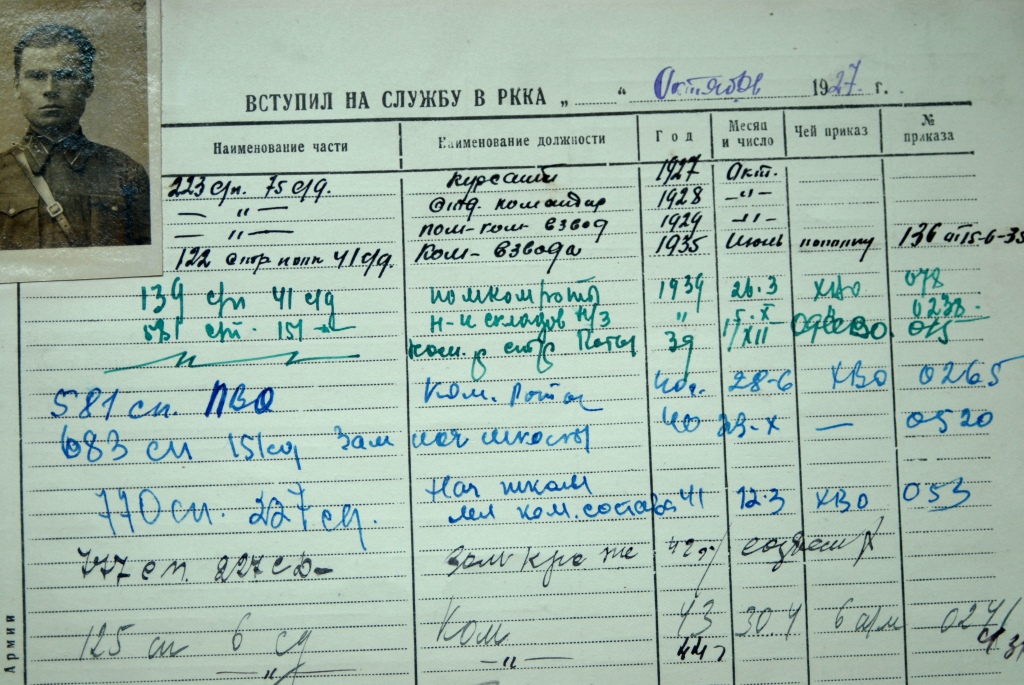 ВСТУПИЛ НА СЛУЖБУ В РККА „ “ Октябрь 1927 г.
Наименование части Наименование должности Год Месяц и число Чей приказ № приказа
223 с/п. 75 с/д. курсант 1927 Окт.
— " — отд. командир 1928 — " —
— " — пом-ком-взвод 1929 — " —
122 стр полк 41 с/д. Ком-взвода 1935 Июль по полку 136 от 15-6-35
139 с/п 41 с/д помкомроты 1939 26.3 ХВО 078
581 с/п. 151 н-к складов Н/З " 5.X 0238
ком. стр Роты 39 1/XII 015
581 сп. ПВО Ком. Роты 40г. 28-6 ХВО 0265
683 сп 151 сд Зам нач школы 40 29-X — 0520
770 сп. 227 сд. Нач школ
мл ком. состава 41 12.3 ХВО 053
777 сп. 227 СД- 42
125 сп 6 сд Ком 43 30.4 6 арм
— " — — " — 44
Армии